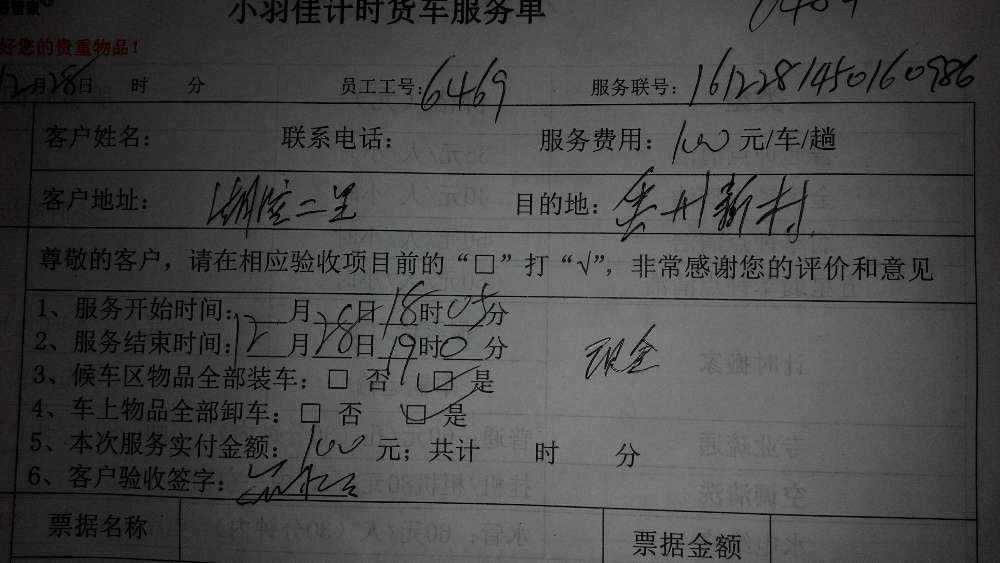 小羽佳计时货车服务单
好您的贵重物品!
12月28日 时 分 员工工号:6469 服务联号:1612281450160986
客户姓名: 联系电话: 服务费用:100元/车/趟
客户地址: 二里 目的地:新村
尊敬的客户,请在相应验收项目前的“□”打“√”,非常感谢您的评价和意见
1、服务开始时间: 月28日18时05分
2、服务结束时间:12月28日19时0分 现金
3、候车区物品全部装车:□ 否 □ 是
4、车上物品全部卸车:□ 否 □ 是
5、本次服务实付金额:100元;共计 时 分
6、客户验收签字:
票据名称 票据金额